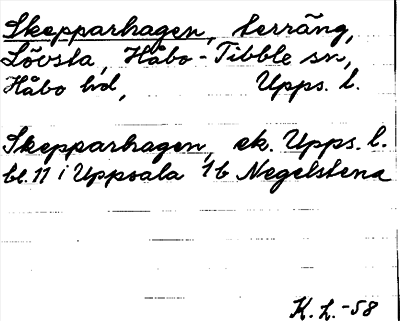 Skepparhagen, terräng,
Lövsta, Håbo-Tibble sn,
Håbo hd, Upps. l.
Skepparhagen, ek. Upps. l.
bl. 11 i Uppsala 1b Negelstena
K. L. -58